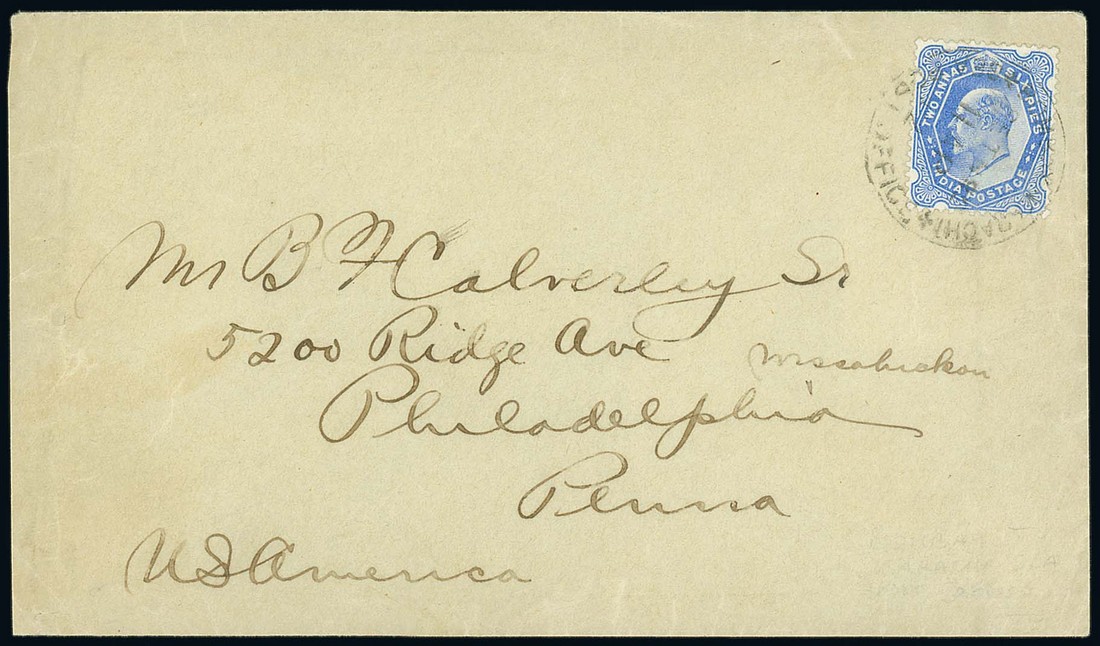 TWO ANNAS SIX PIES
INDIA POSTAGE
Mr B F Calverley Sr
5200 Ridge Ave Wissahickon
Philadelphia
Penna
U S America